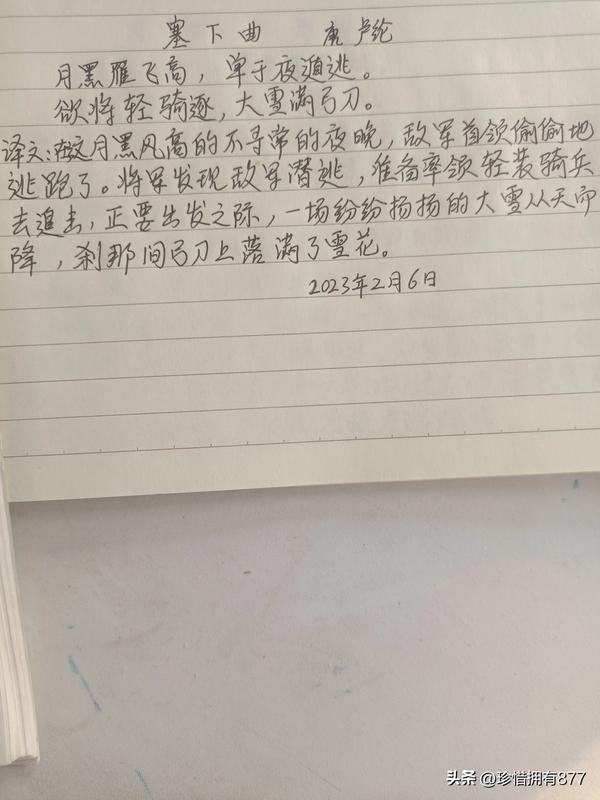 塞下曲 唐 卢纶
月黑雁飞高，单于夜遁逃。
欲将轻骑逐，大雪满弓刀。
译文:在这月黑风高的不寻常的夜晚，敌军首领偷偷地
逃跑了。将军发现敌军潜逃，准备率领轻装骑兵
去追击，正要出发之际，一场纷纷扬扬的大雪从天而
降，刹那间弓刀上落满了雪花。
2023年2月6日
头条 @珍惜拥有877